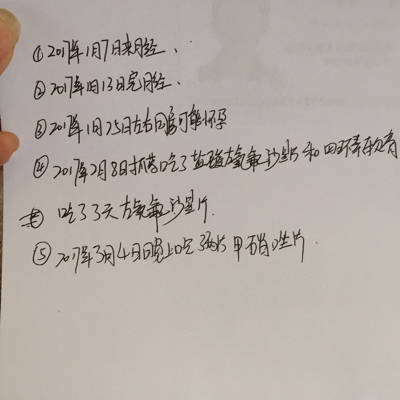 ①2017年1月7日来月经、
②2017年1月13日完月经.
③2017年1月25日左右同房可能怀孕
④2017年2月8日抹搭吃了盐酸左氧氟沙星片和四环素软膏
吃了3天左氧氟沙星片.
⑤2017年3月4日晚上吃了两片甲硝唑片.